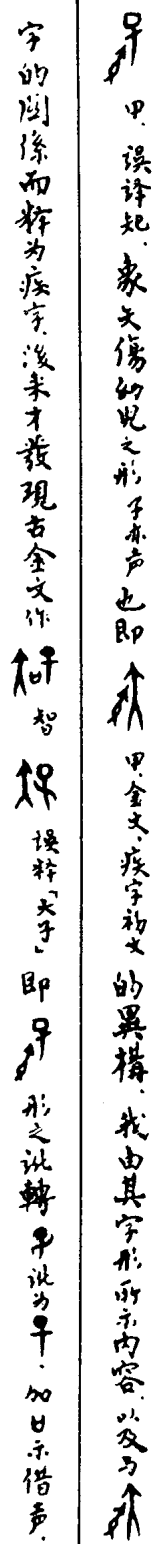 甲、誤譯㚔、象矢傷幼兒之形子亦声也即 甲、金文、疾字初文的異構、我由其字形所示内容、以及与
字的関係而釋为疾字、後来才發現古金文作 智 誤釋「大子」即 形之訛轉 訛为 、加日示借声、